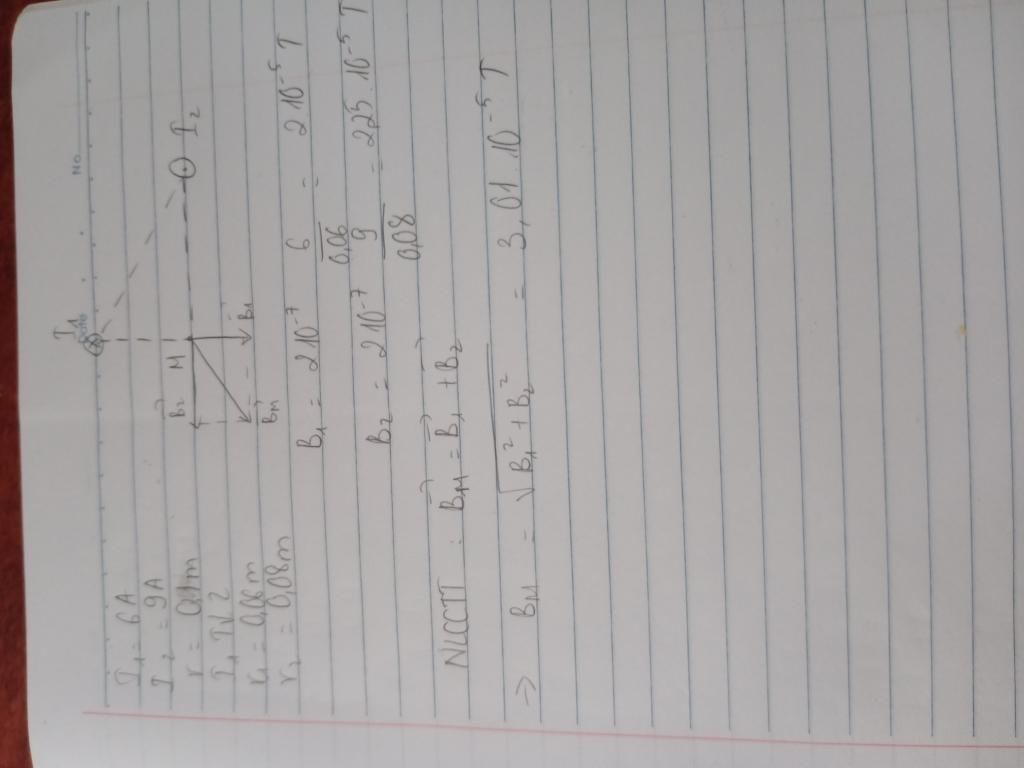 No.
Date
I₁
I₁ = 6A
I₂ = 9A
r = 0,1m
r₁ = 0,06m
r₂ = 0,08m
B₂ M I₂
Bₘ B₁
B₁ = 2 10⁻⁷ 6/0,06 = 2 10⁻⁵ T
B₂ = 2 10⁻⁷ 9/0,08 = 2,25. 10⁻⁵ T
NLCCTT : Bₘ = B₁ + B₂
→ Bₘ = √B₁² + B₂² = 3,01. 10⁻⁵ T